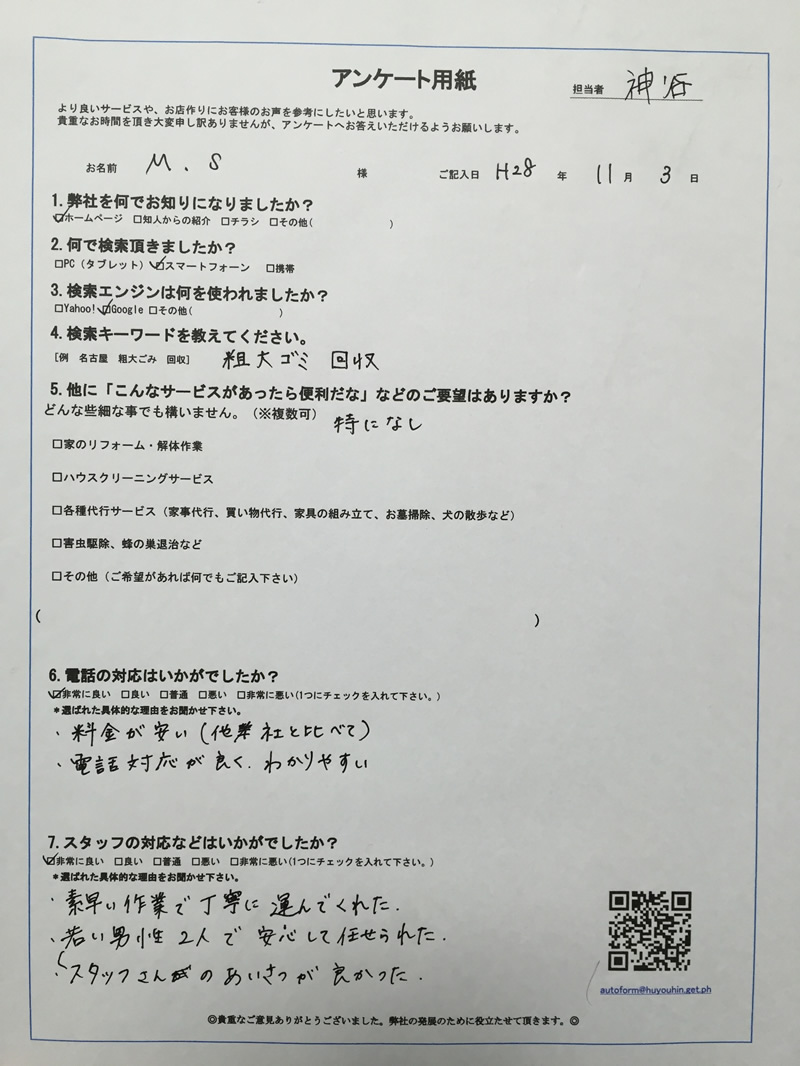 アンケート用紙
担当者 神谷
より良いサービスや、お店作りにお客様のお声を参考にしたいと思います。
貴重なお時間を頂き大変申し訳ありませんが、アンケートへお答えいただけるようお願いします。
お名前 M.S 様 ご記入日 H28 年 11 月 3 日
1.弊社を何でお知りになりましたか？
☑ホームページ □知人からの紹介 □チラシ □その他( )
2.何で検索頂きましたか？
□PC（タブレット）☑スマートフォーン □携帯
3.検索エンジンは何を使われましたか？
□Yahoo! ☑Google □その他( )
4.検索キーワードを教えてください。
[例 名古屋 粗大ごみ 回収] 粗大ゴミ 回収
5.他に「こんなサービスがあったら便利だな」などのご要望はありますか？
どんな些細な事でも構いません。（※複数可） 特になし
□家のリフォーム・解体作業
□ハウスクリーニングサービス
□各種代行サービス（家事代行、買い物代行、家具の組み立て、お墓掃除、犬の散歩など）
□害虫駆除、蜂の巣退治など
□その他（ご希望があれば何でもご記入下さい）
( )
6.電話の対応はいかがでしたか？
☑非常に良い □良い □普通 □悪い □非常に悪い(1つにチェックを入れて下さい。)
＊選ばれた具体的な理由をお聞かせ下さい。
・料金が安い(他業社と比べて)
・電話対応が良く、わかりやすい
7.スタッフの対応などはいかがでしたか？
☑非常に良い □良い □普通 □悪い □非常に悪い(1つにチェックを入れて下さい。)
＊選ばれた具体的な理由をお聞かせ下さい。
・素早い作業で丁寧に運んでくれた.
・若い男性2人で安心して任せられた.
・スタッフさんのあいさつが良かった.
autoform@huyouhin.get.ph
◎貴重なご意見ありがとうございました。弊社の発展のために役立たせて頂きます。◎